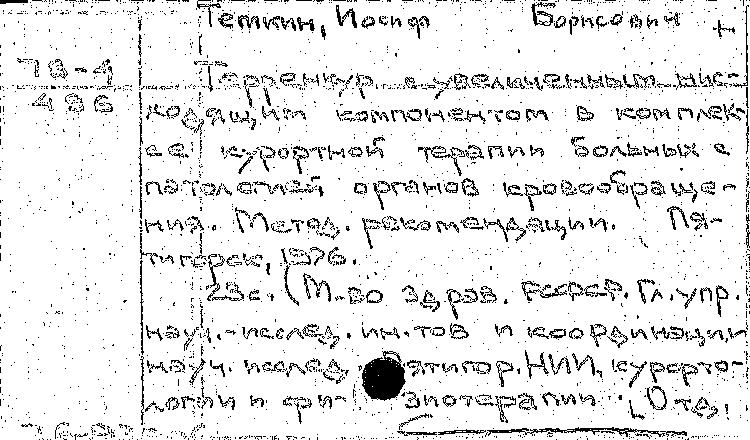 Темкин, Иосиф Борисович +
78-4 Терренкур с увеличенным нис-
486 ходящим компонентом в комплек-
се курортной терапии больных с
патологией органов кровообраще-
ния. Метод. рекомендации. Пя-
тигорск, 1976.
23с. (М-во здрав. РСФСР. Гл. упр.
науч.-исслед. ин.тов и координации
науч. исслед. Пятигор. НИИ, курорто-
логии и фи- зиотерапии. Отд.